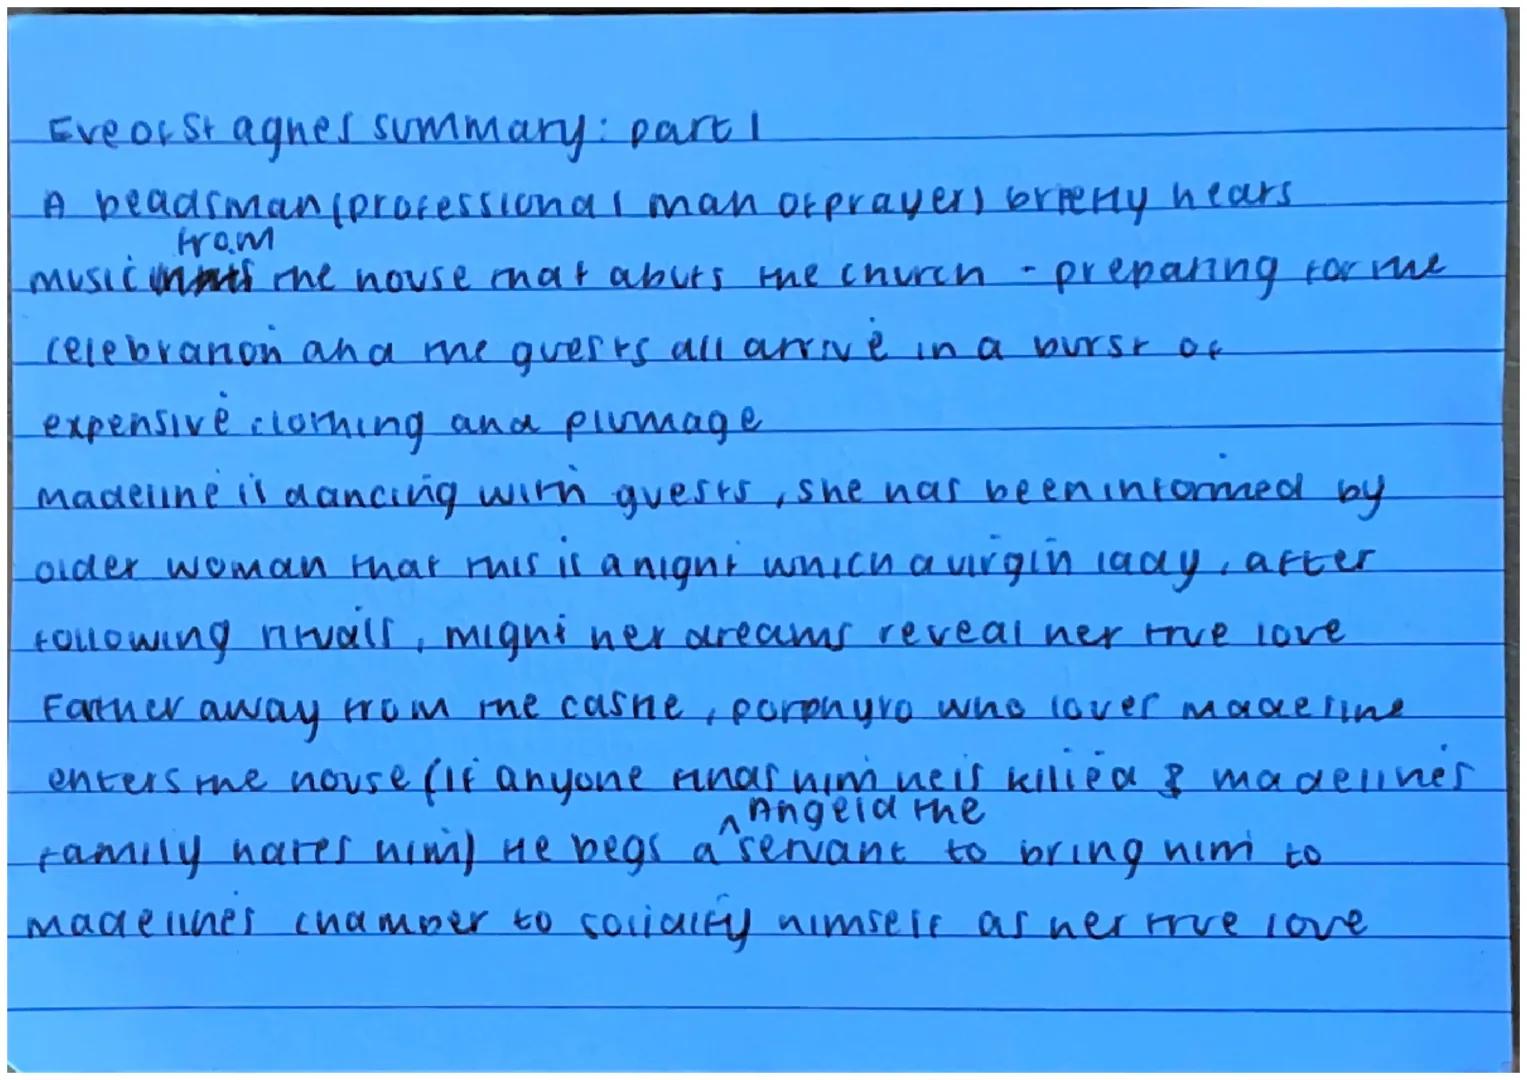 Eve of St agnes summary: part 1
A beadsman (professional man of prayer) briefly hears
from
music the house that abuts the church - preparing for the
celebration and the guests all arrive in a burst of
expensive clothing and plumage
madeline is dancing with guests, she has been informed by
older woman that this is a night which a virgin lady, after
following rituals, might her dreams reveal her true love
Father away from the castle, porphyro who loves madeline
enters the house (if anyone finds him he is killed & madelines
Angela the
family hates him) He begs a servant to bring him to
madelines chamber to solidify himself as her true love